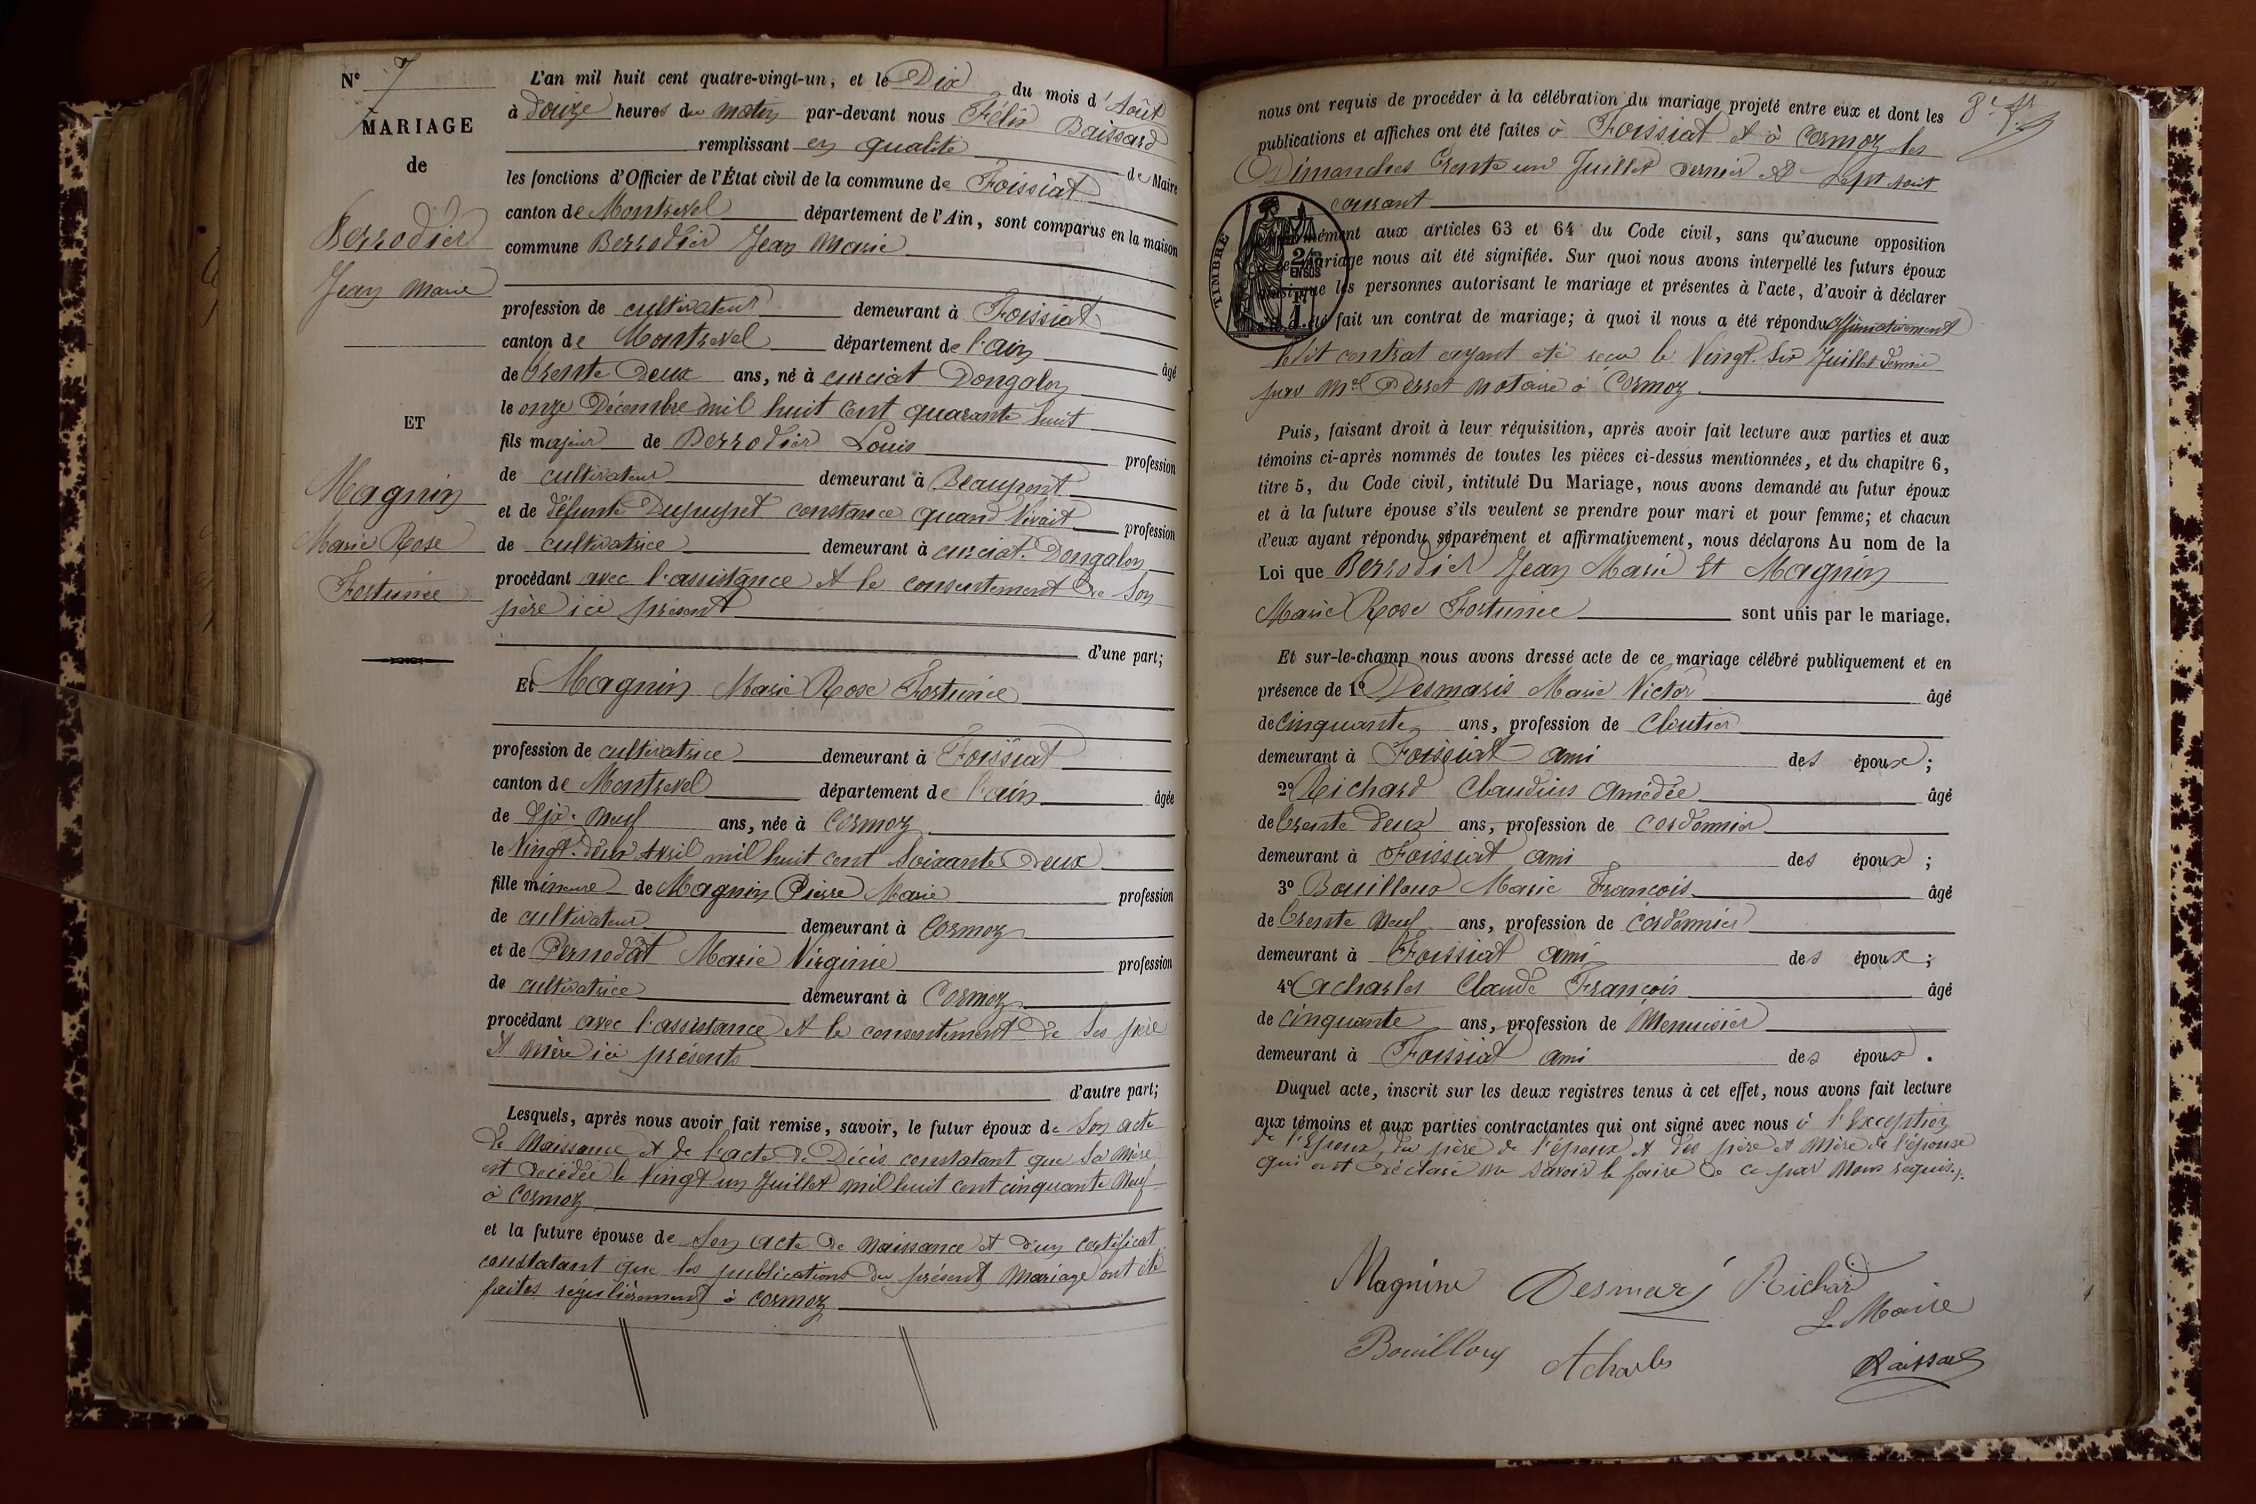 N° 7
MARIAGE
de
Berrodier
Jean Marie
ET
Magnin
Marie Rose
Fortunée
L'an mil huit cent quatre-vingt-un, et le Dix du mois d'Août
à douze heures du matin par-devant nous Félix Baissard
remplissant en qualité de Maire
les fonctions d'Officier de l'État civil de la commune de Foissiat
canton de Montrevel département de l'Ain, sont comparus en la maison
commune Berrodier Jean Marie
profession de cultivateur demeurant à Foissiat
canton de Montrevel département de l'ain âgé
de trente Deux ans, né à curciat Dongalon
le onze Décembre mil huit Cent quarante huit
fils majeur de Berrodier Louis profession
de cultivateur demeurant à Beaupont
et de défunte Dupupet constance quand Vivait profession
de cultivatrice demeurant à curciat. Dongalon
procédant avec l'assistance et le consentement de Son
père ici présent
d'une part;
Et Magnin Marie Rose Fortunée
profession de cultivatrice demeurant à Foissiat
canton de Montrevel département de l'ain âgée
de dix-neuf ans, née à Cormoz
le Vingt-deux Avril mil huit cent Soixante Deux
fille mineure de Magnin Pierre Marie profession
de cultivateur demeurant à Cormoz
et de Pernodât Marie Virginie profession
de cultivatrice demeurant à Cormoz
procédant avec l'assistance et le consentement de Ses père
et mère ici présents
d'autre part;
Lesquels, après nous avoir fait remise, savoir, le futur époux de Son acte
de Naissance et de l'acte de Décès constatant que Sa Mère
est décédée le Vingt un Juillet mil huit cent cinquante Neuf
à Cormoz
et la future épouse de Son acte de Naissance et d'un certificat
constatant que les publications du présent Mariage ont été
faites régulièrement à Cormoz
nous ont requis de procéder à la célébration du mariage projeté entre eux et dont les
publications et affiches ont été faites à Foissiat et à Cormoz les
Dimanches trente un Juillet dernier et Sept Août
courant
TIMBRE
2/10 EN SUS
conformément aux articles 63 et 64 du Code civil, sans qu'aucune opposition
mariage nous ait été signifiée. Sur quoi nous avons interpellé les futurs époux
ainsi que les personnes autorisant le mariage et présentes à l'acte, d'avoir à déclarer
s'il a été fait un contrat de mariage; à quoi il nous a été répondu affirmativement
ledit contrat ayant été reçu le Vingt Six Juillet dernier
par Me Perret notaire à Cormoz
Puis, faisant droit à leur réquisition, après avoir fait lecture aux parties et aux
témoins ci-après nommés de toutes les pièces ci-dessus mentionnées, et du chapitre 6,
titre 5, du Code civil, intitulé Du Mariage, nous avons demandé au futur époux
et à la future épouse s'ils veulent se prendre pour mari et pour femme; et chacun
d'eux ayant répondu séparément et affirmativement, nous déclarons Au nom de la
Loi que Berrodier Jean Marie Et Magnin
Marie Rose Fortunée sont unis par le mariage.
Et sur-le-champ nous avons dressé acte de ce mariage célébré publiquement et en
présence de 1° Desmaris Marie Victor âgé
de cinquante ans, profession de Cloutier
demeurant à Foissiat ami des époux;
2° Richard Claudius Amédée âgé
de trente deux ans, profession de cordonnier
demeurant à Foissiat ami des époux;
3° Bouilloux Marie François âgé
de trente Neuf ans, profession de Cordonnier
demeurant à Foissiat ami des époux;
4° Acharles Claude François âgé
de cinquante ans, profession de Menuisier
demeurant à Foissiat ami des époux.
Duquel acte, inscrit sur les deux registres tenus à cet effet, nous avons fait lecture
aux témoins et aux parties contractantes qui ont signé avec nous à l'Exception
de l'Epoux, du père de l'époux et des père et mère de l'épouse
qui ont déclaré ne savoir le faire de ce par Nous requis.
Magnin Desmaris Richard
Le Maire
Bouilloux Acharles Baissard